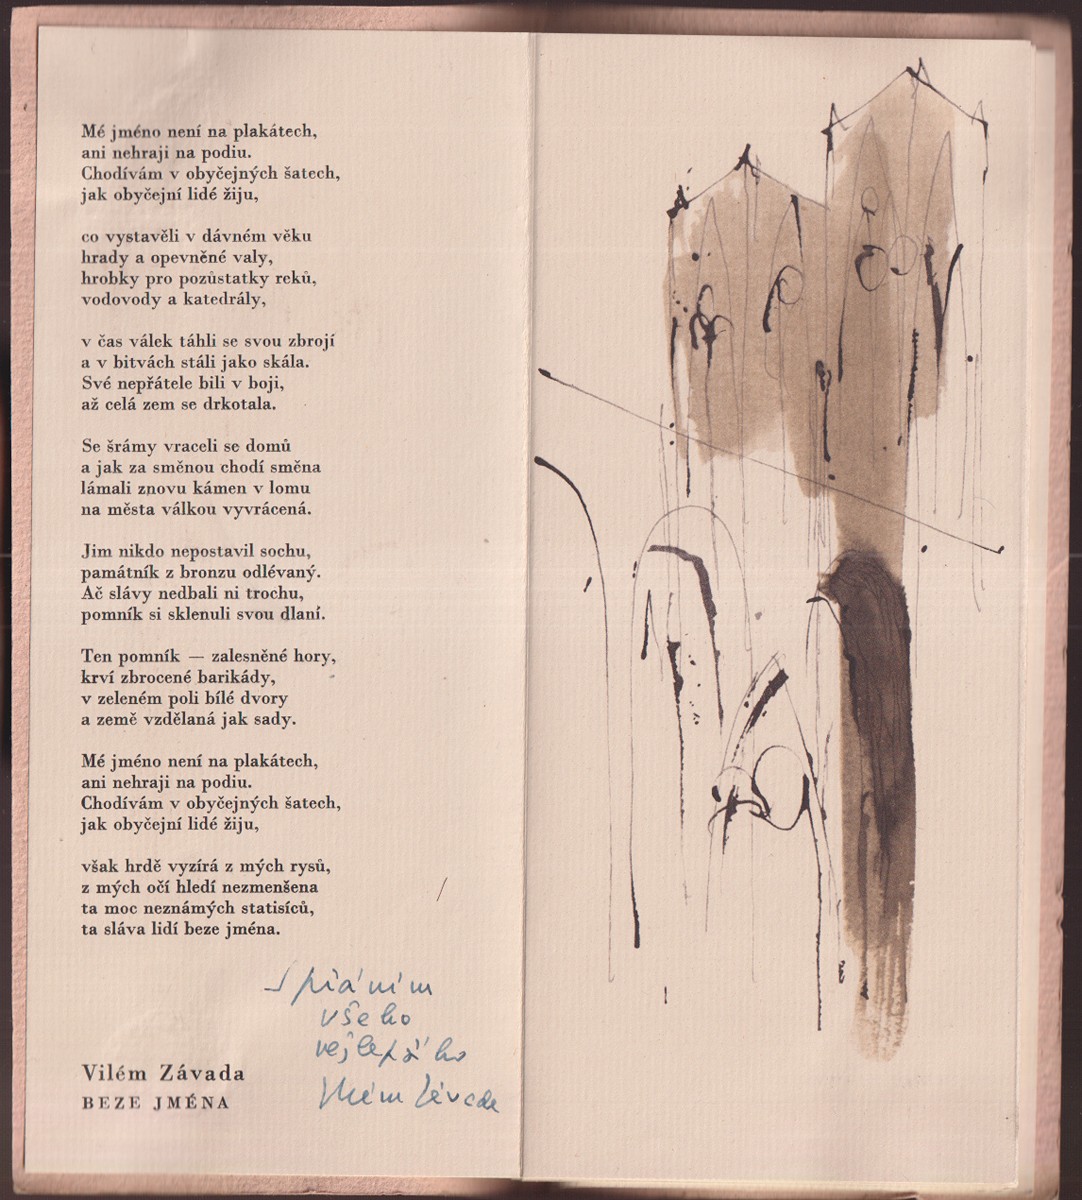 Mé jméno není na plakátech,
ani nehraji na podiu.
Chodívám v obyčejných šatech,
jak obyčejní lidé žiju,
co vystavěli v dávném věku
hrady a opevněné valy,
hrobky pro pozůstatky reků,
vodovody a katedrály,
v čas válek táhli se svou zbrojí
a v bitvách stáli jako skála.
Své nepřátele bili v boji,
až celá zem se drkotala.
Se šrámy vraceli se domů
a jak za směnou chodí směna
lámali znovu kámen v lomu
na města válkou vyvrácená.
Jim nikdo nepostavil sochu,
památník z bronzu odlévaný.
Ač slávy nedbali ni trochu,
pomník si sklenuli svou dlaní.
Ten pomník — zalesněné hory,
krví zbrocené barikády,
v zeleném poli bílé dvory
a země vzdělaná jak sady.
Mé jméno není na plakátech,
ani nehraji na podiu.
Chodívám v obyčejných šatech,
jak obyčejní lidé žiju,
však hrdě vyzírá z mých rysů,
z mých očí hledí nezmenšena
ta moc neznámých statisíců,
ta sláva lidí beze jména.
S přáním
všeho
nejlepšího
Vilém Závada
Vilém Závada
BEZE JMÉNA